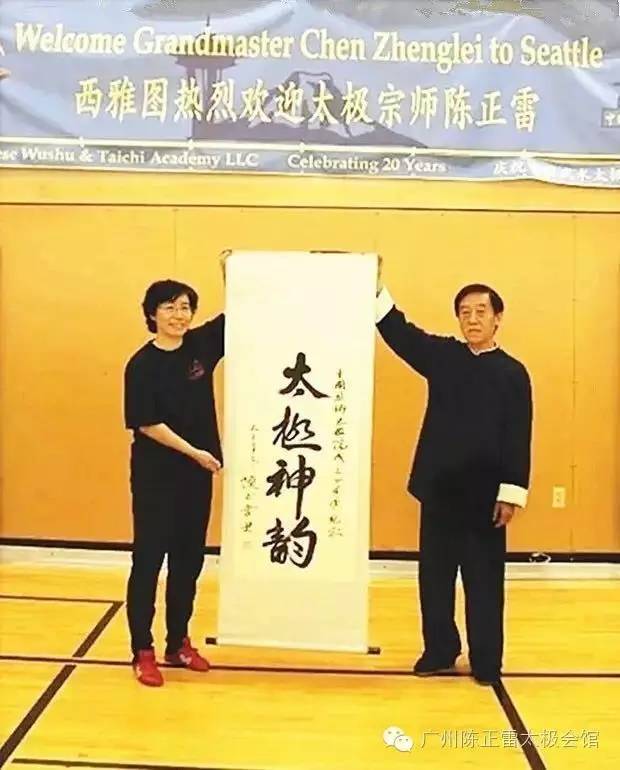 Welcome Grandmaster Chen Zhenglei to Seattle
西雅图热烈欢迎太极宗师陈正雷
ese Wushu & Taichi Academy LLC Celebrating 20 Years 庆祝
太极神韵
广州陈正雷太极会馆